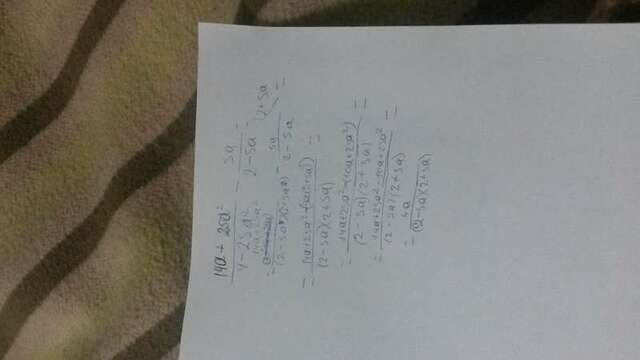 14a + 25a² / 4 - 25a² - 5a / 2 - 5a =
= 14a + 25a² / (2 - 5a)(2 + 5a) - 5a / 2 - 5a \ 2 + 5a =
= 14a + 25a² - / (2 - 5a)(2 + 5a) =
= 14a + 25a² - (10a + 25a²) / (2 - 5a)(2 + 5a) =
= 14a + 25a² - 10a + 25a² / (2 - 5a)(2 + 5a) =
= 4a / (2 - 5a)(2 + 5a)